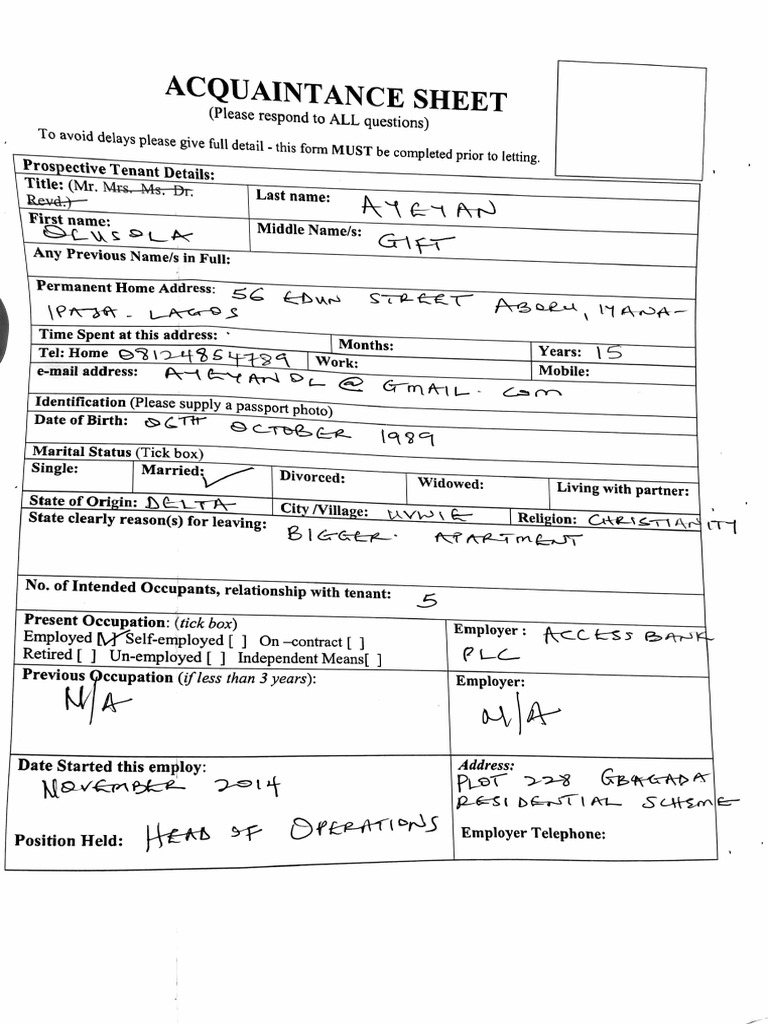 ACQUAINTANCE SHEET
(Please respond to ALL questions)
To avoid delays please give full detail - this form MUST be completed prior to letting.
Prospective Tenant Details:
Title: (Mr. Mrs. Ms. Dr. Revd.)
Last name: AYEYAN
First name: OLUSOLA
Middle Name/s: GIFT
Any Previous Name/s in Full:
Permanent Home Address: 56 EDUN STREET ABORU, IYANA-
IPAJA - LAGOS
Time Spent at this address: Months: Years: 15
Tel: Home 08124854789 Work: Mobile:
e-mail address: AYEYANOL@GMAIL.COM
Identification (Please supply a passport photo)
Date of Birth: 06TH OCTOBER 1989
Marital Status (Tick box)
Single: Married: ✓ Divorced: Widowed: Living with partner:
State of Origin: DELTA City /Village: UVWIE Religion: CHRISTIANITY
State clearly reason(s) for leaving: BIGGER. APARTMENT
No. of Intended Occupants, relationship with tenant: 5
Present Occupation: (tick box)
Employed [✓] Self-employed [ ] On –contract [ ]
Retired [ ] Un-employed [ ] Independent Means[ ]
Employer : ACCESS BANK
PLC
Previous Occupation (if less than 3 years):
N/A
Employer:
N/A
Date Started this employ:
NOVEMBER 2014
Position Held: HEAD OF OPERATIONS
Address:
PLOT 228 GBAGADA
RESIDENTIAL SCHEME
Employer Telephone: